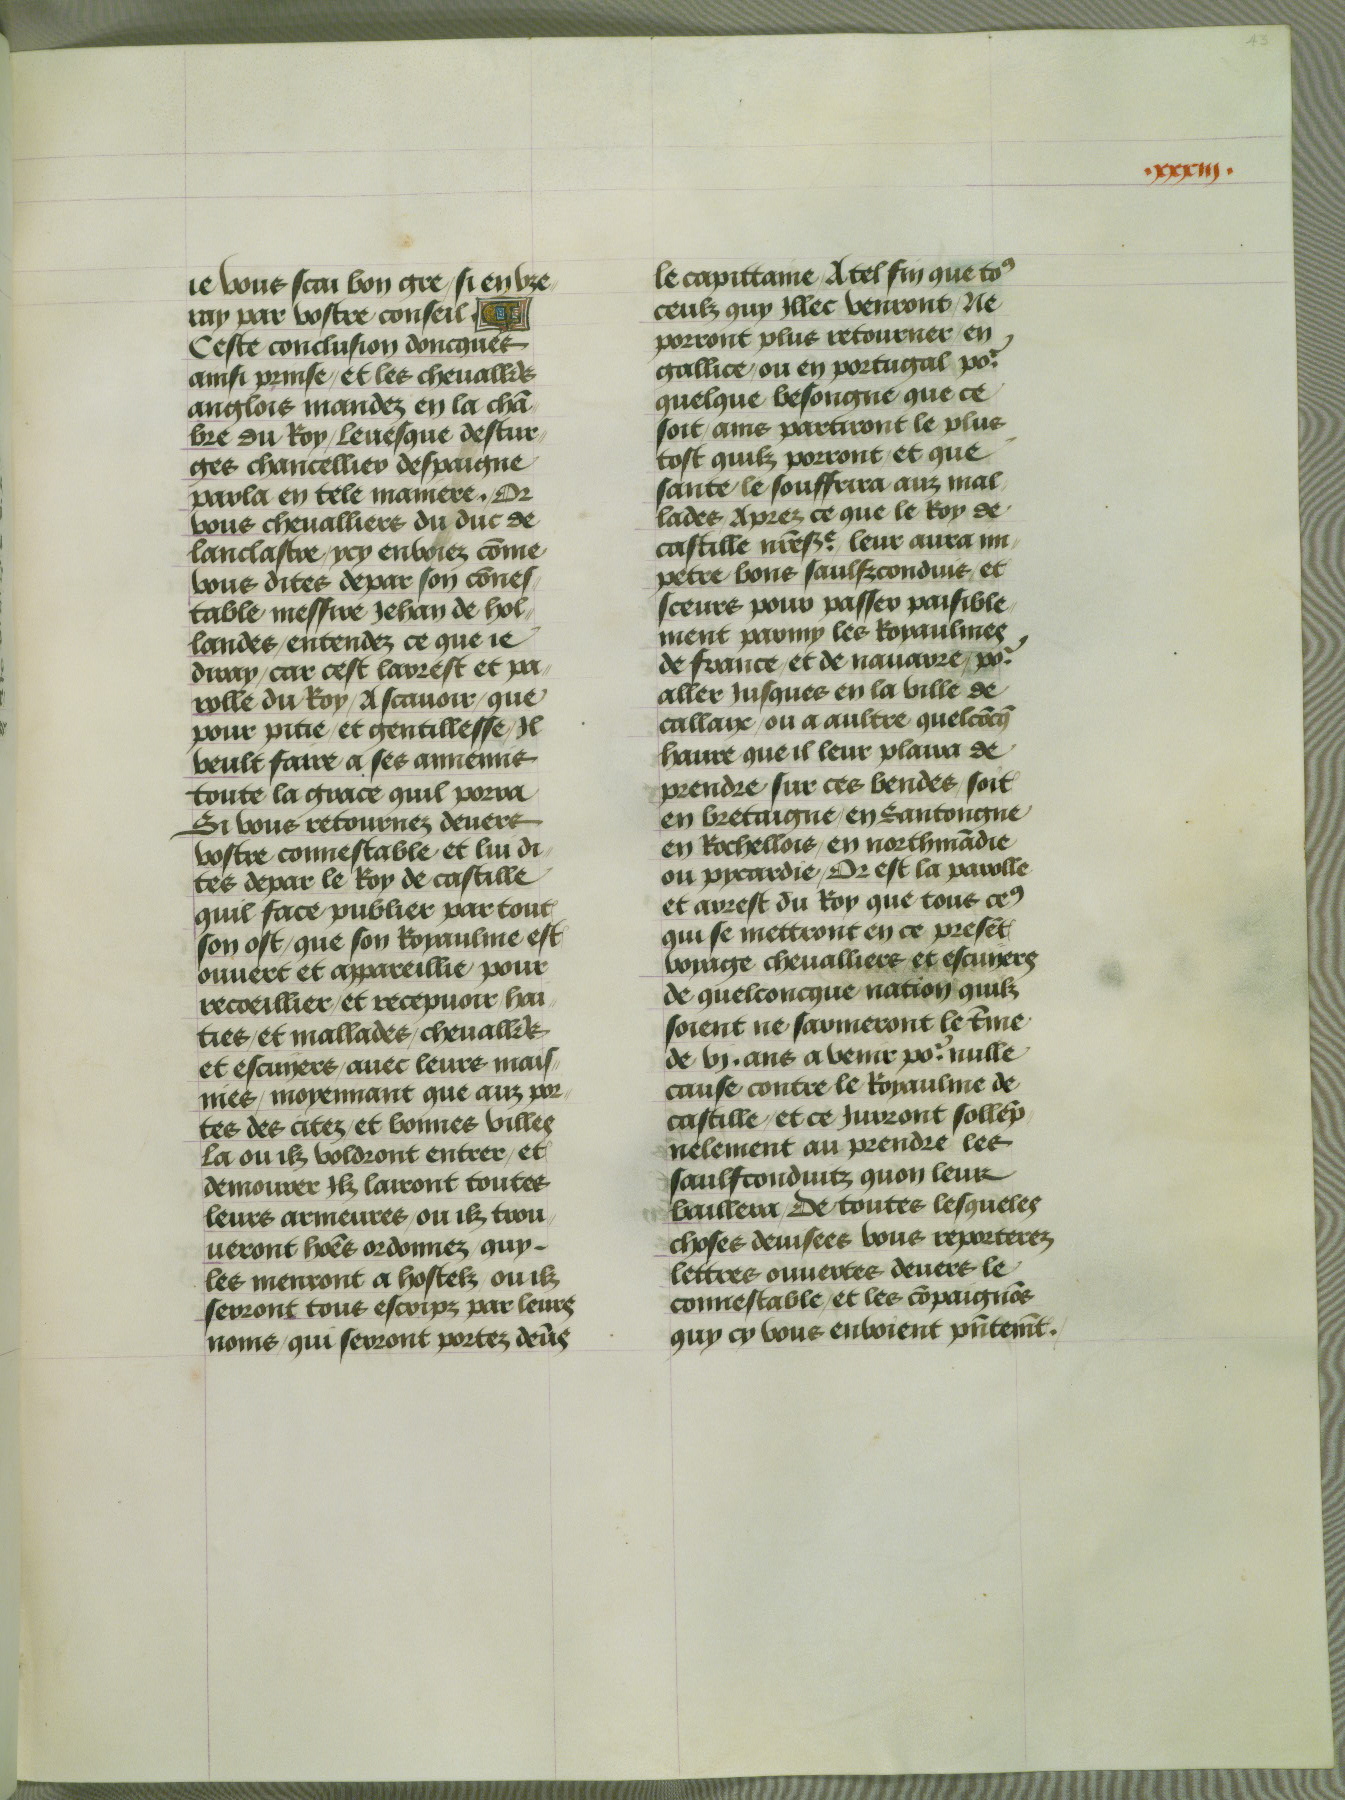 43
·xxxiii·
ie vous scai bon gre / si en vze
ray par vostre conseil.
Ceste conclusion doncques
ainsi prinse / et les cheuall̄rs
anglois mandez en la chā
bre du Roy / leuesque destur
ges chancellier despaigne
parla en tele maniere. Or
vous cheualliers du duc de
lanclastre / ycy envoiez cōme
vous dites de par son cōnes
table messire Jehan de hol
landes / entendez ce que ie
diray / car cest larrest et pa
rolle du Roy / A scauoir / que
pour pitie / et gentillesse / Il
veult faire a ses annemis
toute la grace quil porra
Si vous retournez deuers
vostre connestable et lui di
tes de par le Roy de castille
quil face publier par tout
son ost / que son Royaulme est
ouuert et appareillie pour
recoeillier / et recepuoir hai
ties / et mallades / cheuall̄rs
et escuyers / auec leurs mais
nies / moyennant que aux por
tes des citez / et bonnes villes
La ou ilz voldront entrer / et
demourer Ilz lairont toutes
leurs armeures / ou ilz trou
ueront hōes ordonnez quy
les menront a hostelz ou ilz
serront tous escripz par leurs
noms / qui serront portez deūs
le capittaine A tel fin que to⁹
ceulz quy Illec venront / Ne
porront plus retourner en
gallice / ou en portugal po͛
quelque besongne que ce
soit / ains partiront le plus
tost quilz porront et que
sante le souffrira aux mal
lades Aprez ce que le Roy de
castille nr̄e sᵉ leur aura im
petre bons saulfzconduis et
sceurs pour passer paisible
ment parmy les Royaulmes
de france / et de nauarre / po͛
aller Jusques en la ville de
callaix / ou a aultre quelcōcq̄
haure que il leur plaira de
prendre sur ces bendes / soit
en bretaigne / en Santongne
en Rochellois / en northmādie
ou pycardie / Or est la parolle
et arrest du Roy que tous ce⁹
qui se mettront en ce presēt
voiage cheualliers et escuyers
de quelconcque nation quilz
soient ne sarmeront le t̄me
de vj. ans a venir po͛ nulle
cause contre le Royaulme de
castille / et ce Jurront sollēp
nelement au prendre les
saulfconduitz quon leur
baillera / De toutes lesqueles
choses deuisees vous reporterez
lettres ouuertes deuers le
connestable / et les cōpaignōs
quy cy vous envoient pn̄temēt.